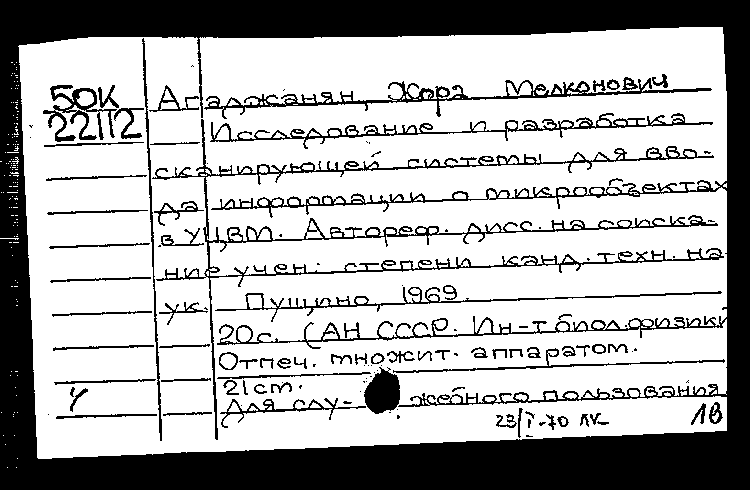 50К Агаджанян, Жора Мелконович
22112 Исследование и разработка
сканирующей системы для вво-
да информации о микрообъектах
в УЦВМ. Автореф. дисс. на соиска-
ние учен. степени канд. техн. на-
ук. Пущино, 1969.
20с. (АН СССР. Ин-т биол.физики
Отпеч. множит. аппаратом.
21cm.
У Для слу- жебного пользования
23/I-70 ЛК 1В